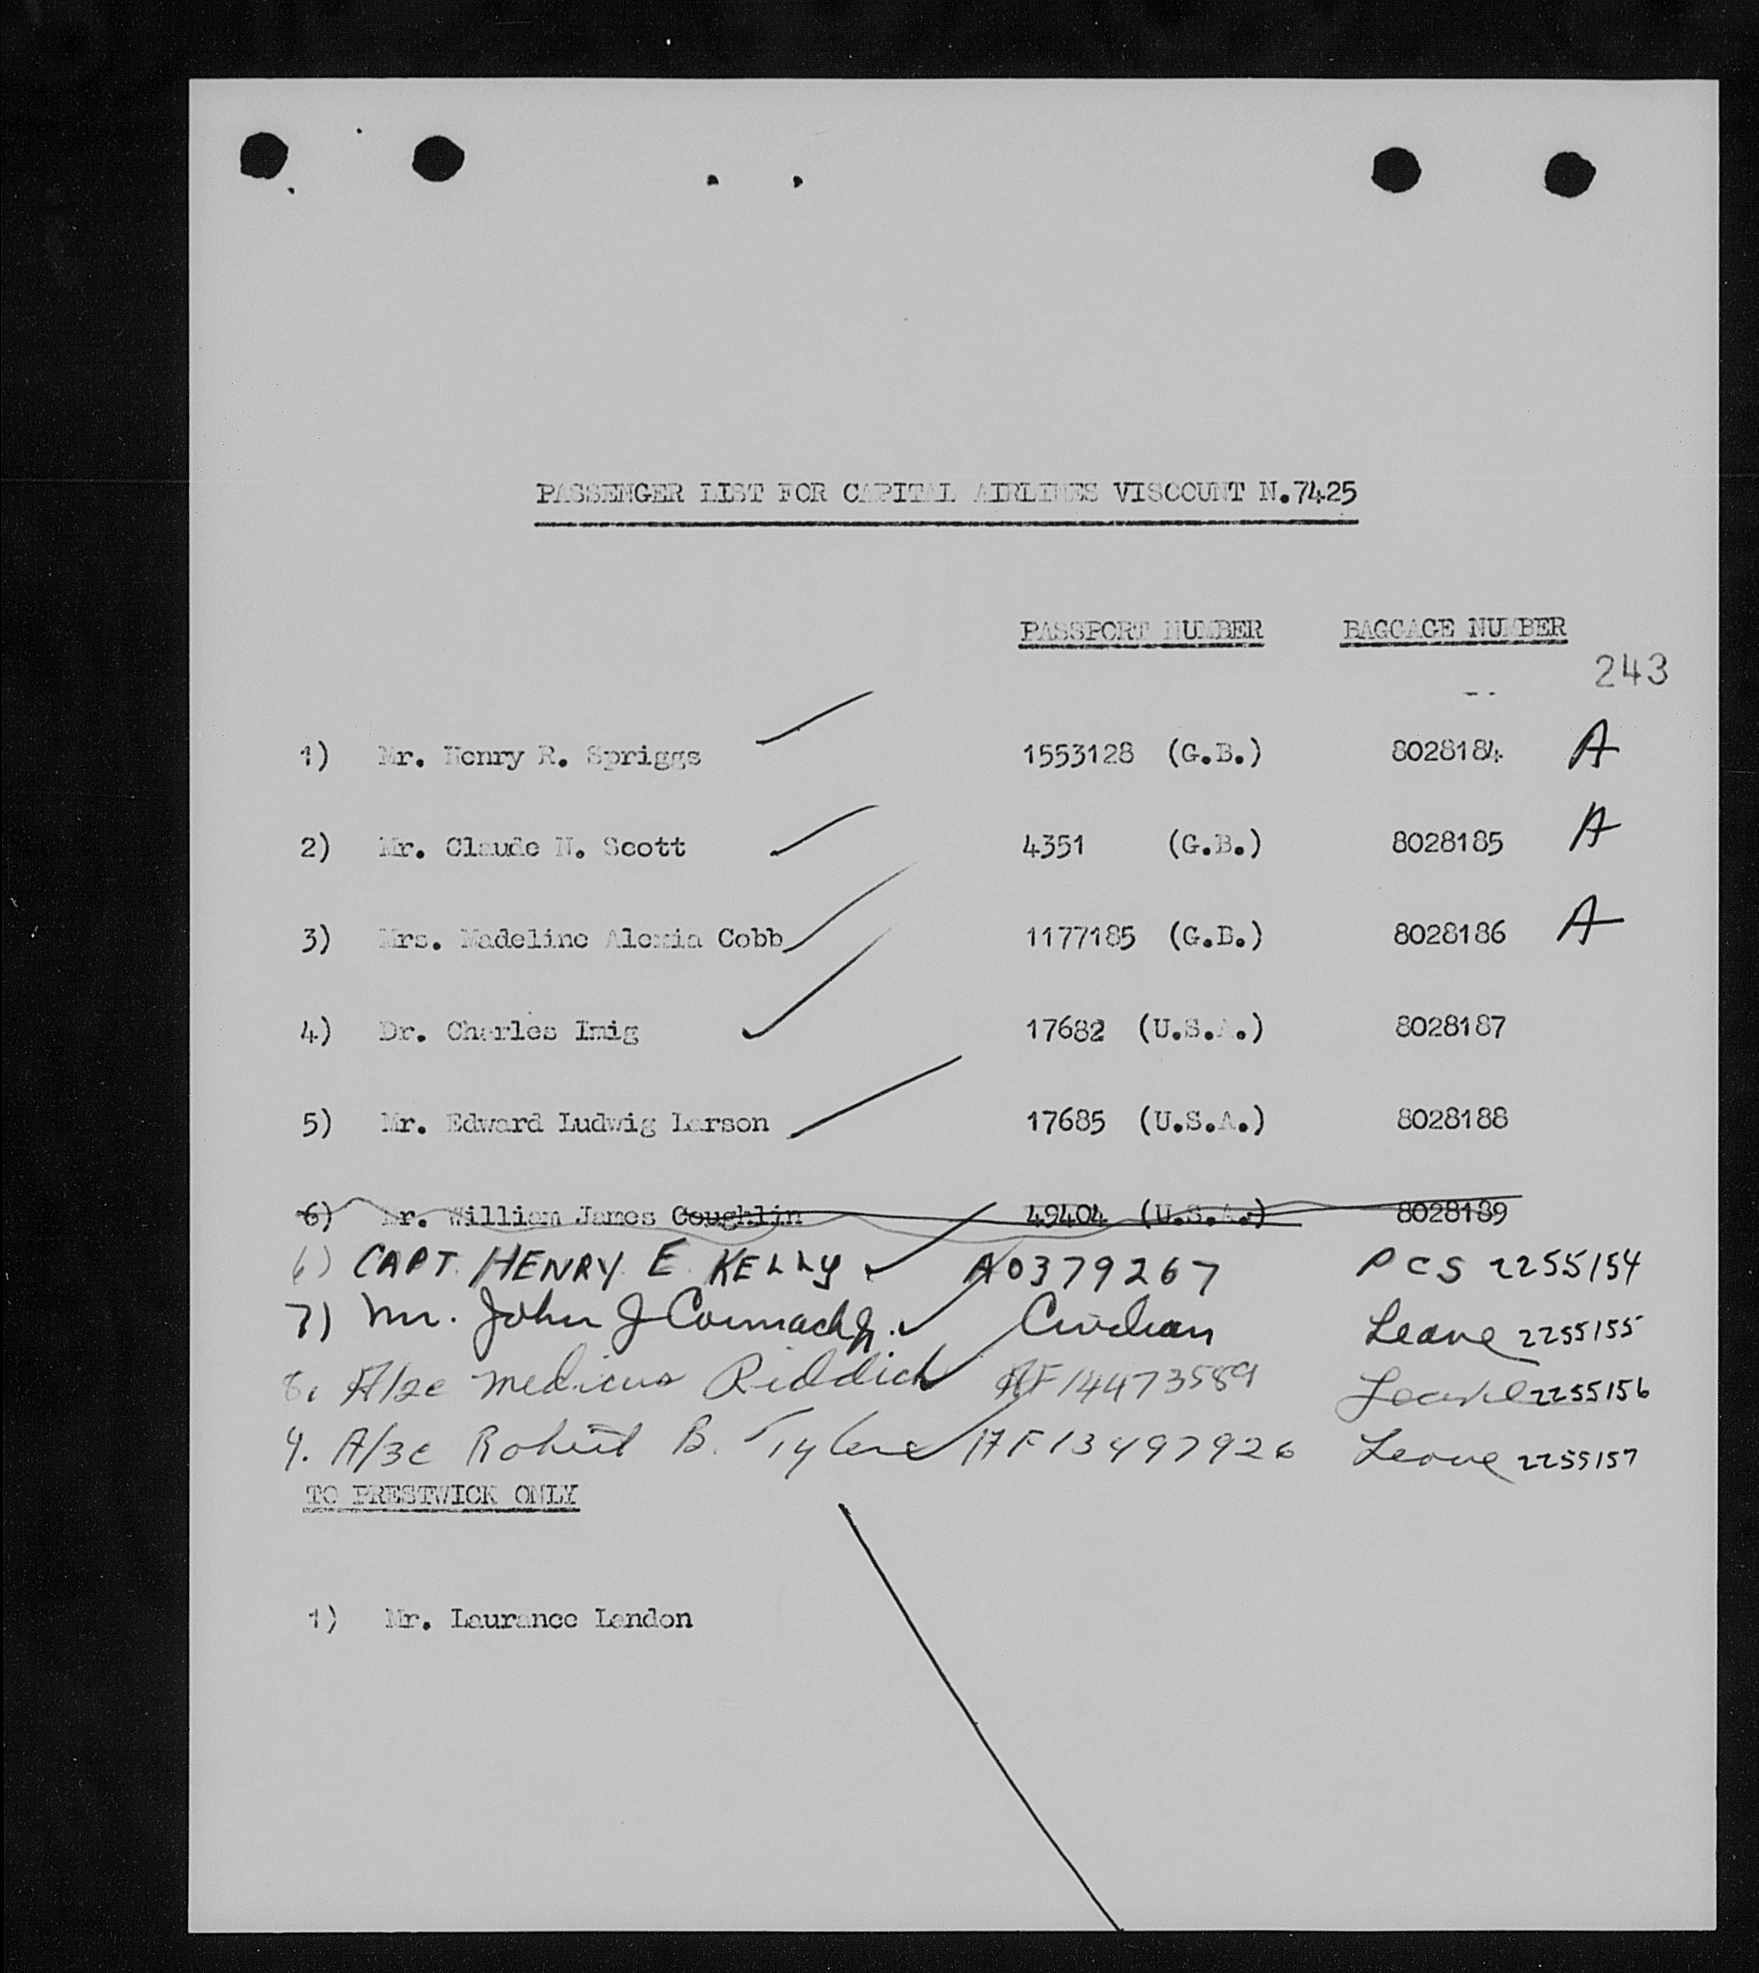 PASSENGER LIST FOR CAPITAL AIRLINES VISCOUNT N.7425
PASSPORT NUMBER BAGGAGE NUMBER
243
1) Mr. Henry R. Spriggs 1553128 (G.B.) 8028184 A
2) Mr. Claude N. Scott 4351 (G.B.) 8028185 A
3) Mrs. Madeline Alexia Cobb 1177185 (G.B.) 8028186 A
4) Dr. Charles Imig 17682 (U.S.A.) 8028187
5) Mr. Edward Ludwig Larson 17685 (U.S.A.) 8028188
6) Mr. William James Coughlin 49404 (U.S.A.) 8028189
6) CAPT. HENRY E. KELLY AO379267 PCS 2255154
7) Mr. John J Cormack Jr. Civilian Leave 2255155
8. A/2c Medicus Riddick AF14473589 Leave 2255156
9. A/3c Robert B. AF13497926 Leave 2255157
TO PRESTWICK ONLY
1) Mr. Laurance Landon